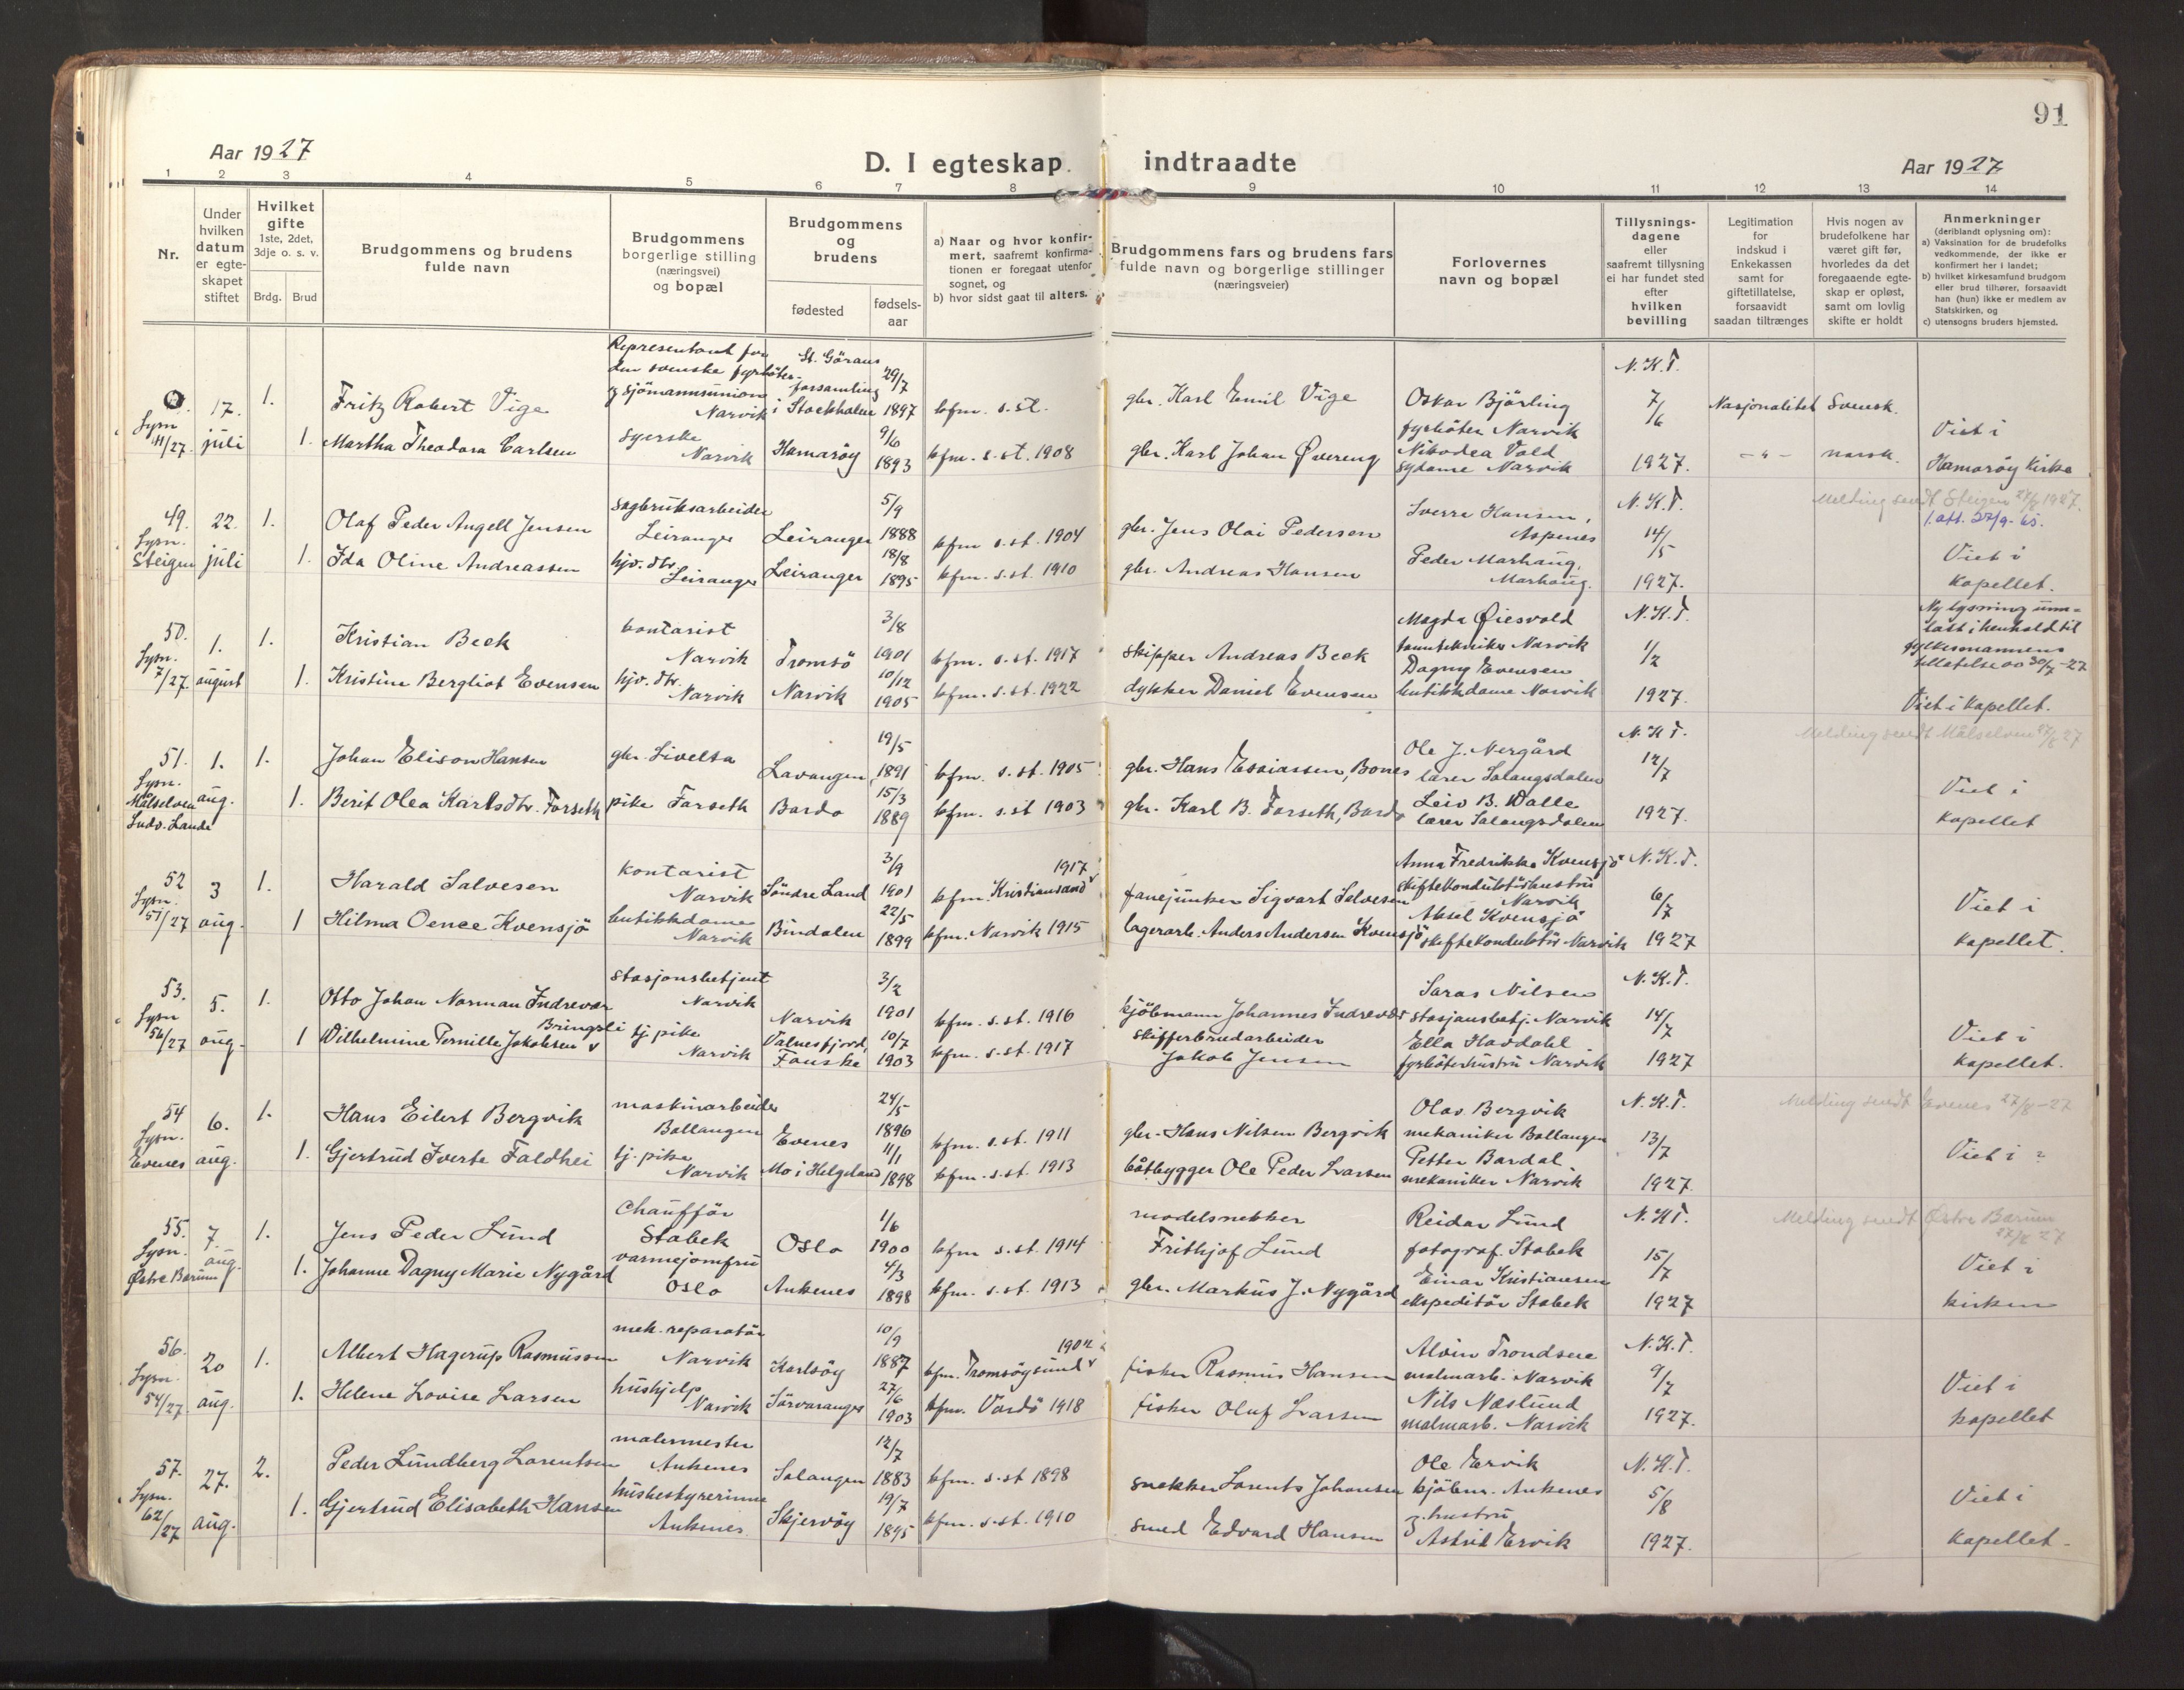 91
Aar 1927
D. I egteskap indtraadte
Aar 1927
1 2 3 4 5 6 7 8 9 10 11 12 13 14
Nr.
Under hvilken datum er egteskapet stiftet
Hvilket gifte 1ste, 2det, 3dje o. s. v.
Brdg. Brud
Brudgommens og brudens fulde navn
Brudgommens borgerlige stilling (næringsvei) og bopæl
Brudgommens og brudens
fødested
fødsels-aar
a) Naar og hvor konfirmert, saafremt konfirmationen er foregaat utenfor sognet, og
b) hvor sidst gaat til alters.
Brudgommens fars og brudens fars fulde navn og borgerlige stillinger (næringsveier)
Forlovernes navn og bopæl
Tillysningsdagene eller saafremt tillysning ei har fundet sted efter hvilken bevilling
Legitimation for indskud i Enkekassen samt for giftetillatelse, forsaavidt saadan tiltrænges
Hvis nogen av brudefolkene har været gift før, hvorledes da det foregaaende egteskap er opløst, samt om lovlig skifte er holdt
Anmerkninger (deriblandt oplysning om):
a) Vaksination for de brudefolks vedkommende, der ikke er konfirmert her i landet;
b) hvilket kirkesamfund brudgom eller brud tilhører, forsaavidt han (hun) ikke er medlem av Statskirken, og
c) utensogns bruders hjemsted.
Representant for den svenske fyrböter- og sjömannsunion Narvik
St. Görans forsamling i Stockholm
29/7 1897
N. K. T.
17. 1. Fritz Robert Vige kfm. s. st. gbr. Karl Emil Vige Oskar Björling fyrböter Narvik 7/6 Nasjonalitet Svensk.
Lysn. 41/27. juli 1. Martha Theodora Carlsen syerske Narvik Hamaröy 9/6 1893 kfm. s. st. 1908 gbr. Karl Johan Övereng Nikodea Vold sydame Narvik 1927. -"- norsk. Viet i Hamaröy Kirke
49. 22. 1. Olaf Peder Angell Jensen sagbruksarbeider Leiranger Leiranger 5/9 1888 kfm s. st. 1904 gbr. Jens Olai Pedersen Sverre Hansen, Aspenes N. K. T. 14/5 Melding sendt Steigen 27/8 1927.
1. att. 22/9-65.
Lysn. Steigen juli 1. Ida Oline Andreassen hjv. dtr. Leiranger Leiranger 18/8 1895 kfm. s. st. 1910 gbr. Andreas Hansen Peder Marhaug, Marhaug. 1927. Viet i kapellet.
50. 1. 1. Kristian Beck kontorist Narvik Tromsö 3/8 1901 kfm. s. st. 1917 skipper Andreas Beck Magda Öiesvold tanntekniker Narvik N. K. T. 1/2 Ny lysning unnlatt i henhold til fylkesmannens tillatelse av 30/7-27
Lysn. 7/27. august 1. Kristine Bergliot Evensen hjv. dtr. Narvik Narvik 10/12 1905 kfm. s. st. 1922 dykker Daniel Evensen Dagny Evensen butikkdame Narvik 1927. Viet i Kapellet.
51. 1. 1. Johan Elison Hansen gbr. Livelta Lavangen 19/5 1891 kfm. s. st. 1905 gbr. Hans Esaiassen, Bones Ole J. Nergård lærer Salangsdalen N. K T. 12/7 Melding sendt Målselven 27/8 27
Lysn. Målselven Ludv. Lande aug. 1. Berit Olea Karlsdtr. Forseth pike Forseth Bardo 15/3 1889 kfm. s. st 1903 gbr. Karl B. Forseth, Bardo Leiv B. Walle lærer Salangsdalen 1927. Viet i kapellet
52 3 1. Harald Salvesen kontorist Narvik Söndre Land 3/9 1901 kfm. Kristiansand 1917 fanejunker Sigvart Salvesen Anna Fredrikke Kvensjö skiftekonduktörhustru Narvik N. K. T. 6/7
Lysn. 51/27 aug. 1 Hilma Oenee Kvensjö butikkdame Narvik Bindalen 22/5 1899 kfm. Narvik 1915 lagerarb. Anders Andersen Kvensjö Aksel Kvensjö skiftekonduktör Narvik 1927 Viet i kapellet.
53. 5. 1. Otto Johan Norman Indrevær stasjonsbetjent Narvik Narvik 3/2 1901 kfm. s. st. 1916 kjöbmann Johannes Indrevær Saras Nilsen stasjonsbetj. Narvik N. K. T. 14/7
Lysn 56/27 aug. 1 Wilhelmine Pernille Jakobsen v Bringsli tj. pike Narvik Valnesfjord, Fauske 10/7 1903 kfm. s. st. 1917 skifferbrudarbeider Jakob Jensen Ella Haddahl fyrböterhustru Narvik 1927 Viet i kapellet.
54 6. 1. Hans Eilert Bergvik maskinarbeider Ballangen Evenes 24/5 1896 kfm. s. st. 1911 gbr. Hans Nilsen Bergvik Olav Bergvik mekaniker Ballangen N. K. T. 13/7 Melding sendt Evenes 27/8-27
Lysn. Evenes aug. 1. Gjertrud Iverte Faldhei tj. pike Narvik Mo i Helgeland 11/1 1898 kfm. s. st. 1913 båtbygger Ole Peder Larsen Petter Bardal mekaniker Narvik 1927. Viet i ?
55. 7. 1. Jens Peder Lund chaufför Stabek Oslo 1/6 1900 kfm s. st. 1914 modelsnekker Frithjof Lund Reidar Lund fotograf. Stabek N. K T. 15/7 Melding sendt Östre Bærum 27/8 27
Lysn. Østre Bærum aug. 1. Johanne Dagny Marie Nygård varmejomfru Oslo Ankenes 4/3 1898 kfm. s. st. 1913 gbr. Markus J. Nygård Einar Kristiansen ekspeditör Stabek 1927 Viet i kirken
56. 20 1. Albert Hagerup Rasmussen mek. reparatör Narvik Karlsöy 10/9 1887 kfm. Tromsöysund 1902 fisker Rasmus Hansen Alvin Trondsen malmarb. Narvik N. K. T. 9/7
Lysn. 54/27. aug. 1. Helene Lovise Larsen hushjelp Narvik Sörvaranger 27/6 1903 kfm. Vardö 1918 fisker Oluf Larsen Nils Næslund malmarb. Narvik 1927. Viet i kapellet
57. 27. 2. Peder Lundberg Lorentsen malermester Ankenes Salangen 12/7 1883 kfm. s. st 1898 snekker Lorents Johansen Ole Ervik kjöbm. Ankenes N. K. T. 5/8
Lysn. 62/27 aug. 1. Gjertrud Elisabeth Hansen husbestyrerinne Ankenes. Skjervöy 19/7 1895 kfm. s. st. 1910 smed Edvard Hansen og hustru Astrid Ervik 1927. Viet i kapellet.